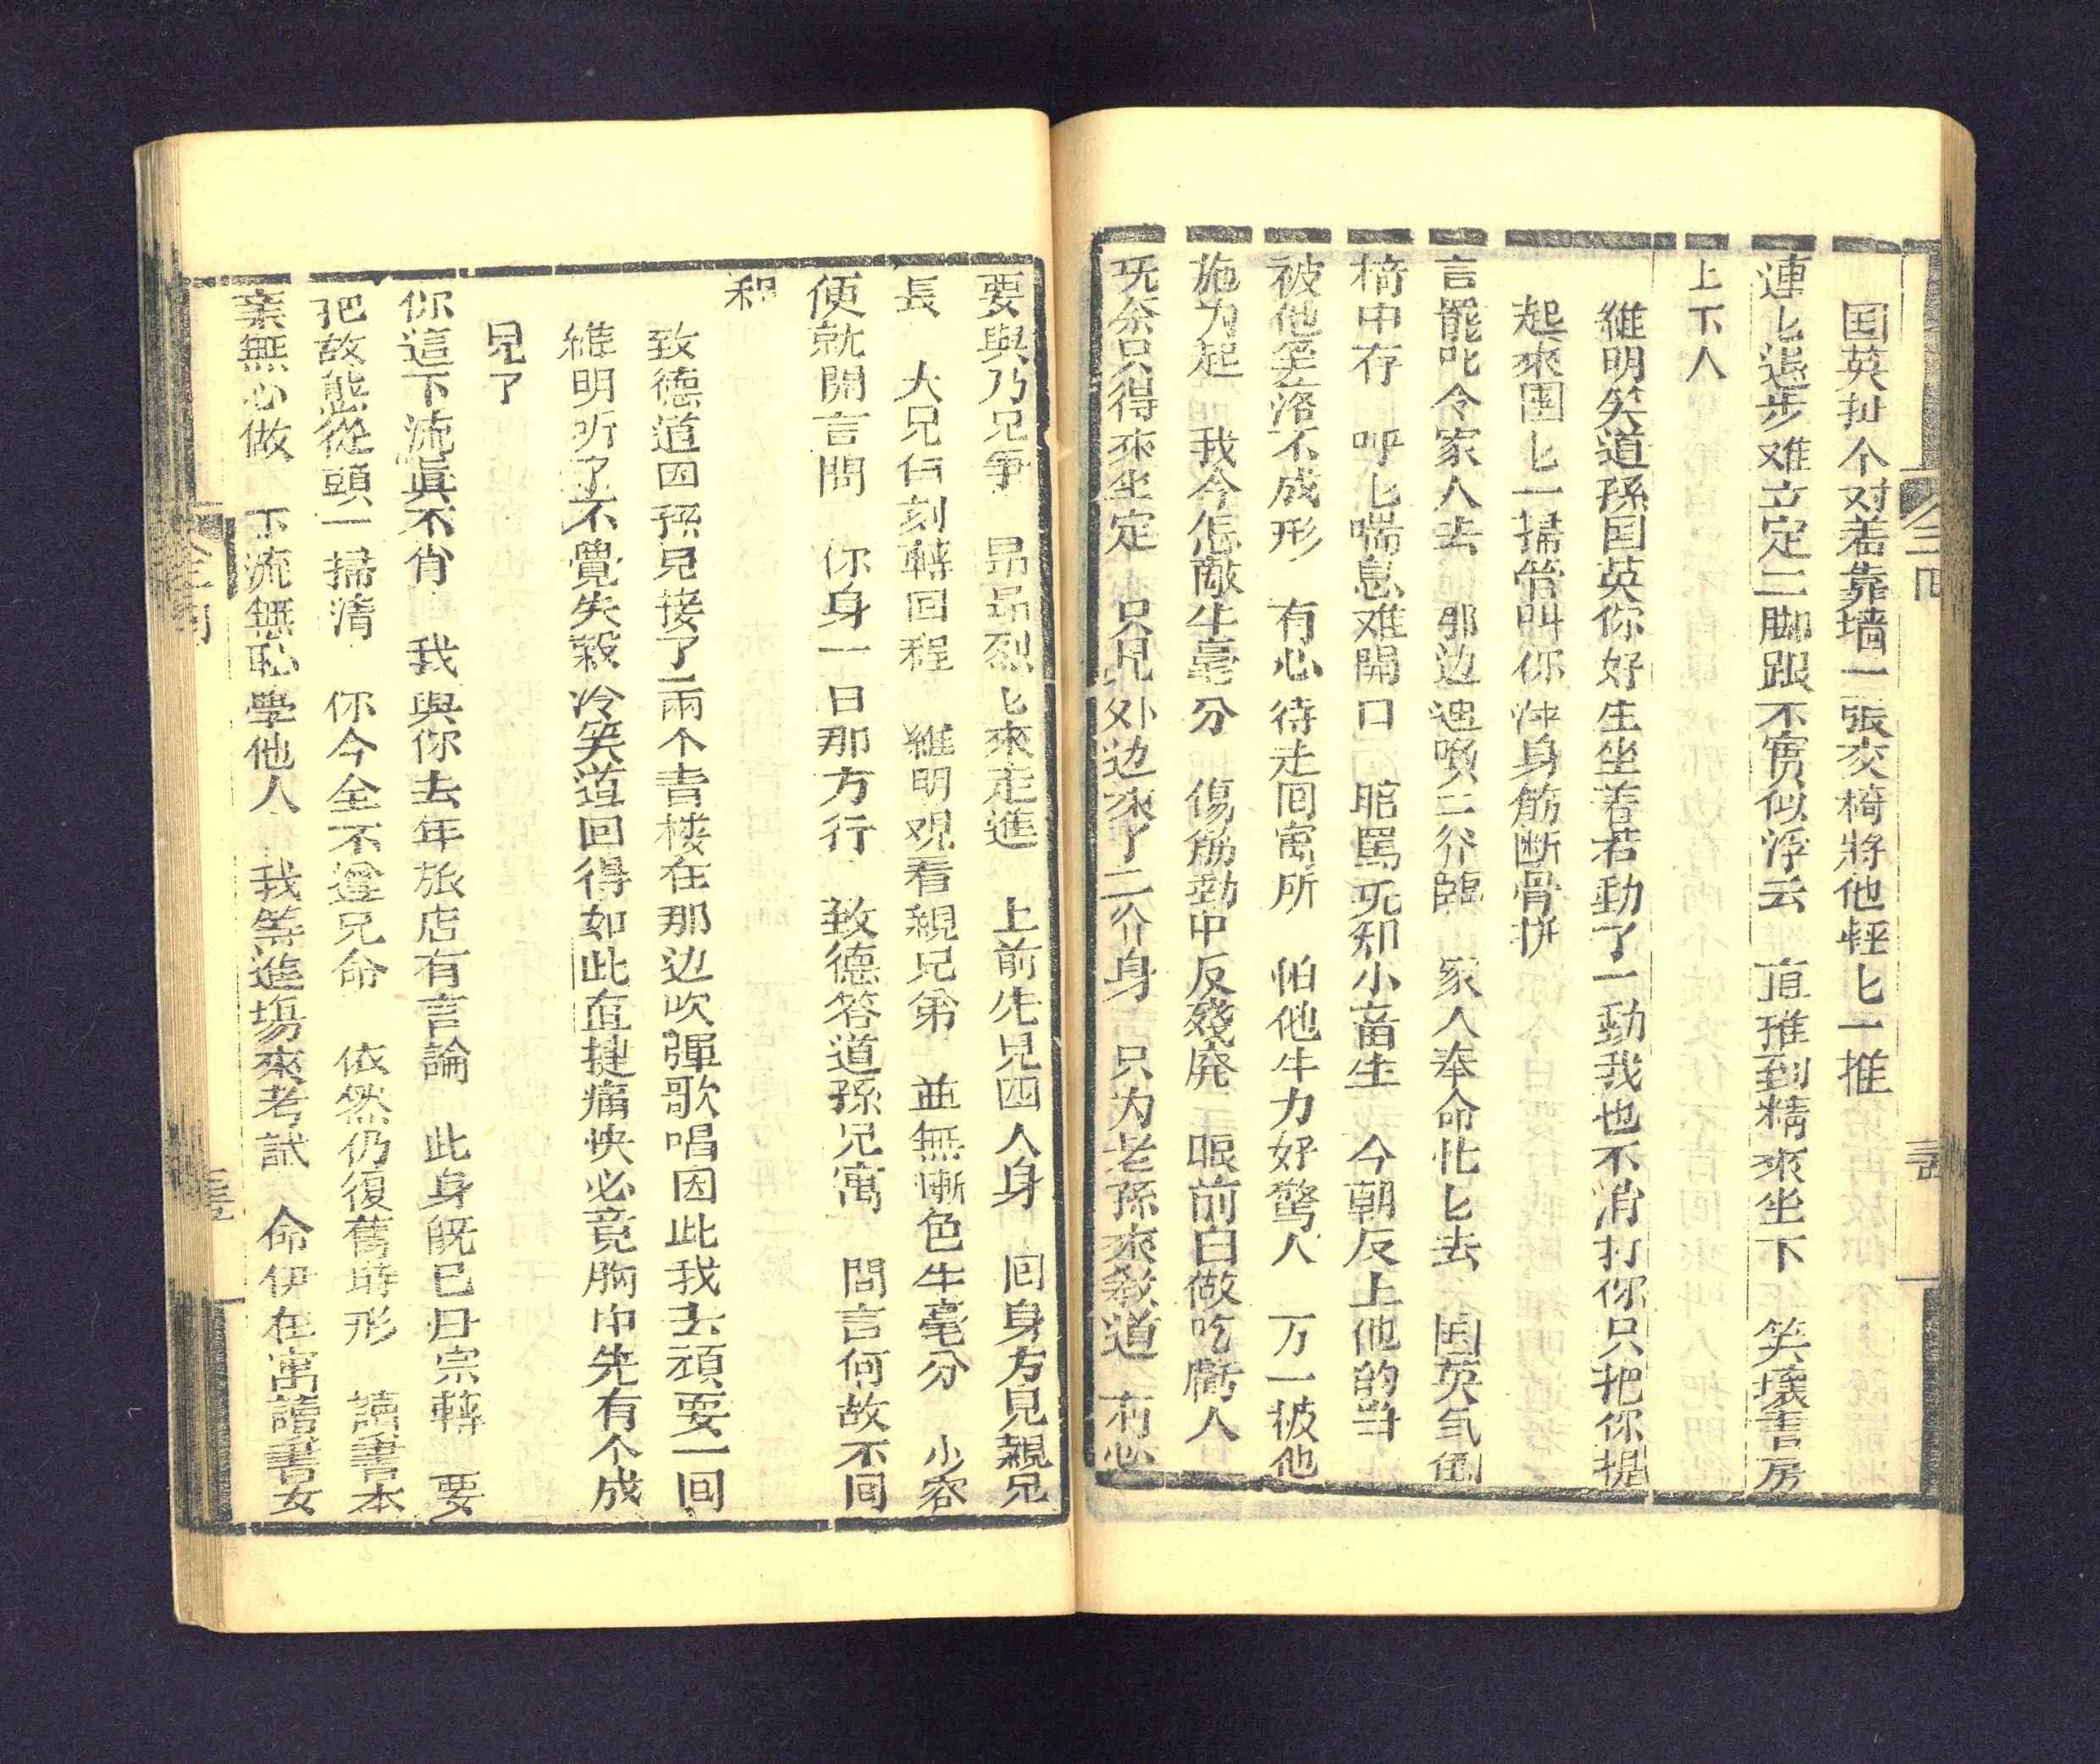 国英扯个对着靠墙一張交椅將他輕匕一推
連匕退步难立定二脚跟不實似浮云 直推到精來坐下 笑壞書房
上下人
維明笑道孫国英你好生坐着若動了一動我也不消打你只把你提
起來国匕一掃管叫你渾身筋断骨拼
言罷叱令家人去 那边速喚二爷臨 家人奉命忙匕去 国英氣倒
椅中存 呼匕喘息难開口 暗罵旡知小畜生 今朝反上他的当
被他笑落不成形 有心待走囬寓所 怕他牛力好驚人 万一被他
施为起 我今怎敵半毫分 傷筋勁中反殘廃 眼前白做吃虧人
旡奈只得來坐定 只見外边來了二爷身 只为老孫來教道 有心
要與乃兄爭 昂昂烈匕來走進 上前先見四人身 回身方見親兄
長 大兄何刻轉回程 維明观看親兄弟 並無慚色半毫分 少容
便就開言問 你身一日那方行 致德答道孫兄寓 問言何故不囬
程
致德道因孫兄接了兩个青楼在那边吹彈歌唱因此我去頑耍一囬
維明听了不覺失殺冷笑道回得如此直捷痛快必竟胸中先有个成
見了
你這下流眞不肖 我與你去年旅店有言論 此身旣已归宗轉 要
把故態從頭一掃清 你今全不遵兄命 依然仍復舊時形 讀書本
亲無必做 下流無恥學他人 我等進塲來考試 命伊在寓讀書文